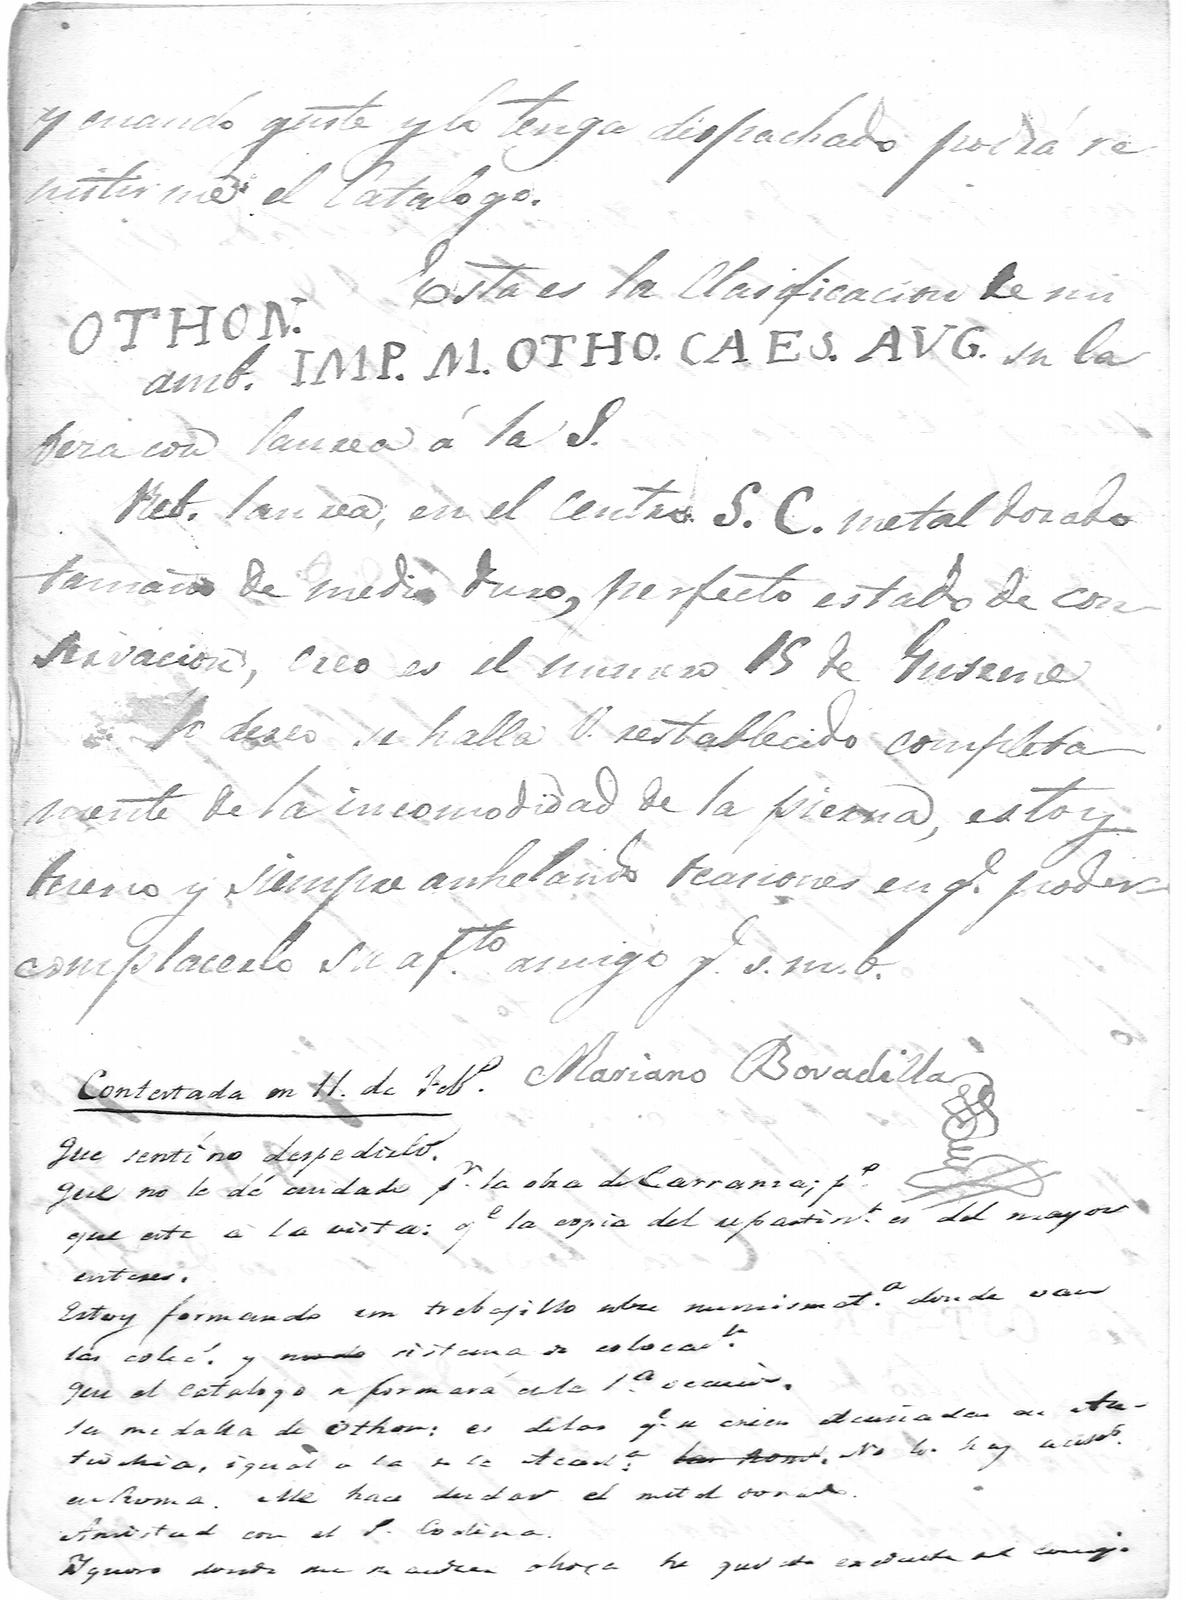 y cuando guste y lo tenga dispachado podrá re
mitirme el Catalogo.
Esta es la Clasificacion de mi
OTHON.
amb. IMP. M. OTHO. CAES. AVG. su la
bera con laurea á la S.
Reb. laurea, en el centro S. C. metal dorado
tamaño de medio duro, perfecto estado de con
servacion, creo es el numero 15 de Guseme
Yo deseo se halla V. restablecido completa
mente de la incomodidad de la pierna, estoy
bueno y siempre anhelando ocasiones en q.e poder
complacerlo su af.to amigo q. s. m. b.
Mariano Bovadilla
Contestada en 11. de Feb.o
Que sentí no despedirlo.
Que no le dé cuidado p.r la obra de Carranza; p.o
que este á la vista: q.e la copia del repartim.t es del mayor
enteres.
Estoy formando un trabajillo sobre numismat.a donde van
las colec. y modo sistema de colocar
Que el catalogo se formará en la 1.a ocasion.
Su medalla de Othon; es de las q.e se creen acuñadas en An-
tiochia, igual a la de la Acad.a las Rom. No las hay
en Roma. Me hace dudar el metal dorado.
Amistad con el S. Codina.
Ygnoro donde